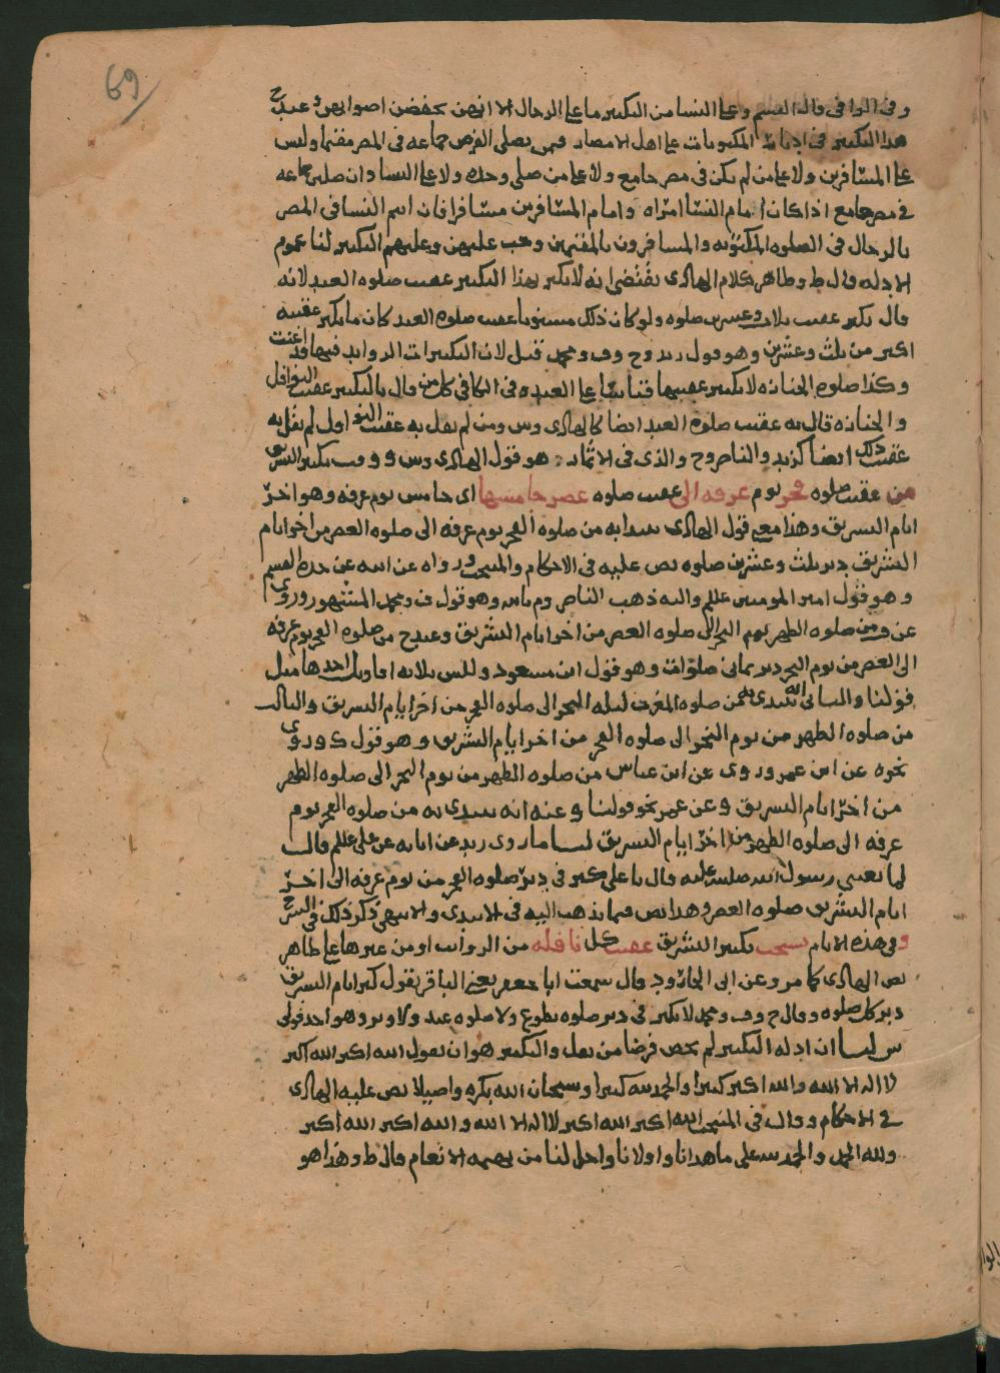 69
وفى الوافى قال القسم وعلى النسا من التكبير ما على الرجال الا انهن يخفضن اصواتهن وعند ح
هذا التكبير فى ادبار المكتوبات على اهل الامصار فمن يصلى الفرض جماعه فى المصر مقيما وليس
على المسافرين ولا على من لم يكن فى مصر جامع ولا على من صلى وحده ولا على النسا وان صلين جماعه
فى مصر جامع اذا كان امام النسا امراه وامام المسافرين مسافرا فان ايتم النسا فى المصر
بالرجال فى الصلوه المكتوبه والمسافرون بالمقيمين وجب عليهن وعليهم التكبير لنا عموم
الادله قال ط وظاهر كلام الهادى يقتضى انه لا يكبر بهذا التكبير عقيب صلوه العيد لانه
قال يكبر عقيب ثلاث وعشرين صلوه ولو كان ذلك مسنونا عقيب صلوه العيد كان ما يكبر عقيبه
اكثر من ثلث وعشرين وهو قول زيد وح وف ومحمد قيل لان التكبيرات الزوايد فيها قد اغنت
وكذا صلوه الجنازه لا يكبر عقيبها قياسا على العيد وفى الكافى كل من قال بالتكبير عقيب النوافل
والجنازه قال به عقيب صلوه العيد ايضا كالهادى وس ومن لم يقل به عقيب النوافل لم يقل به
عقيب ذلك ايضا كزيد والناصر وح والذى فى الاثمار هو قول الهادى وس و وقت تكبير التشريق
من عقيب صلوه فجر يوم عرفه الى عقيب صلوه عصر خامسها اى خامس يوم عرفه وهو اخر
ايام التشريق وهذا معنى قول الهادى يبتدا به من صلوه الفجر يوم عرفه الى صلوه العصر من اخر ايام
التشريق دبر ثلث وعشرين صلوه نص عليه فى الاحكام والمنتخب ورواه عن ابيه عن جده القسم
وهو قول امير المومنين عللم واليه ذهب الناصر وم بالله وهو قول ف ومحمد المشهور وروى
عن ومن صلوه الظهر يوم النحر الى صلوه العصر من اخر ايام التشريق وعند ح من صلوه الفجر يوم عرفه
الى العصر من يوم النحر دبر ثمانى صلوات وهو قول ابن مسعود وللس ثلاثه اقاويل احدها مثل
قولنا والثانى انه يبتدى به من صلوه المغرب ليله النحر الى صلوه الفجر من اخر ايام التشريق والثالث
من صلوه الظهر من يوم النحر الى صلوه الفجر من اخر ايام التشريق وهو قول ك وروى
نحوه عن ابن عمر وروى عن ابن عباس من صلوه الظهر من يوم النحر الى صلوه الظهر
من اخر ايام التشريق وعن عمر نحو قولنا وعنه انه يبتدى به من صلوه الفجر يوم
عرفه الى صلوه الظهر من اخر ايام التشريق لنا ما روى زيد عن ابايه عن على عللم قال
لما بعثنى رسول الله صلى الله عليه قال يا على كبر فى دبر صلوه الفجر من يوم عرفه الى اخر
ايام التشريق صلوه العصر وهذا نص فيما يذهب اليه فى الابتدى والانتهى ذكر ذلك فى الشرح
وفى هذه الايام يستحب تكبير التشريق عقيب كل نافله من الرواتب او من غيرها على ظاهر
نص الهادى كما مر وعن ابى الجارود قال سمعت ابا جعفر يعنى الباقر يقول كبر ايام التشريق
دبر كل صلوه وقال ح وف ومحمد لا يكبر فى دبر صلوه تطوع ولا صلوه عيد ولا وتر وهو احد قولى
س لنا ان ادله التكبير لم تخص فرضا من نفل والتكبير هو ان يقول الله اكبر الله اكبر
لا اله الا الله والله اكبر كبيرا والحمد لله كثيرا وسبحان الله بكره واصيلا نص عليه الهادى
فى الاحكام وقال فى المنتخب الله اكبر الله اكبر لا اله الا الله والله اكبر الله اكبر
ولله الحمد والحمد لله على ما هدانا واولانا واحل لنا من بهيمه الانعام قال ط وهذا هو